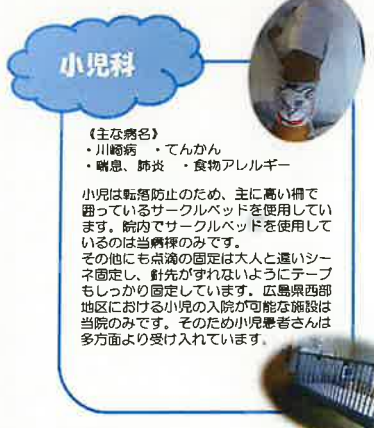 小児科
《主な病名》
・川崎病 ・てんかん
・喘息、肺炎 ・食物アレルギー
小児は転落防止のため、主に高い柵で
囲っているサークルベットを使用してい
ます。院内でサークルベットを使用して
いるのは当病棟のみです。
その他にも点滴の固定は大人と違いシー
ネ固定し、針先がずれないようにテープ
もしっかり固定しています。広島県西部
地区における小児の入院が可能な施設は
当院のみです。そのため小児患者さんは
多方面より受け入れています。